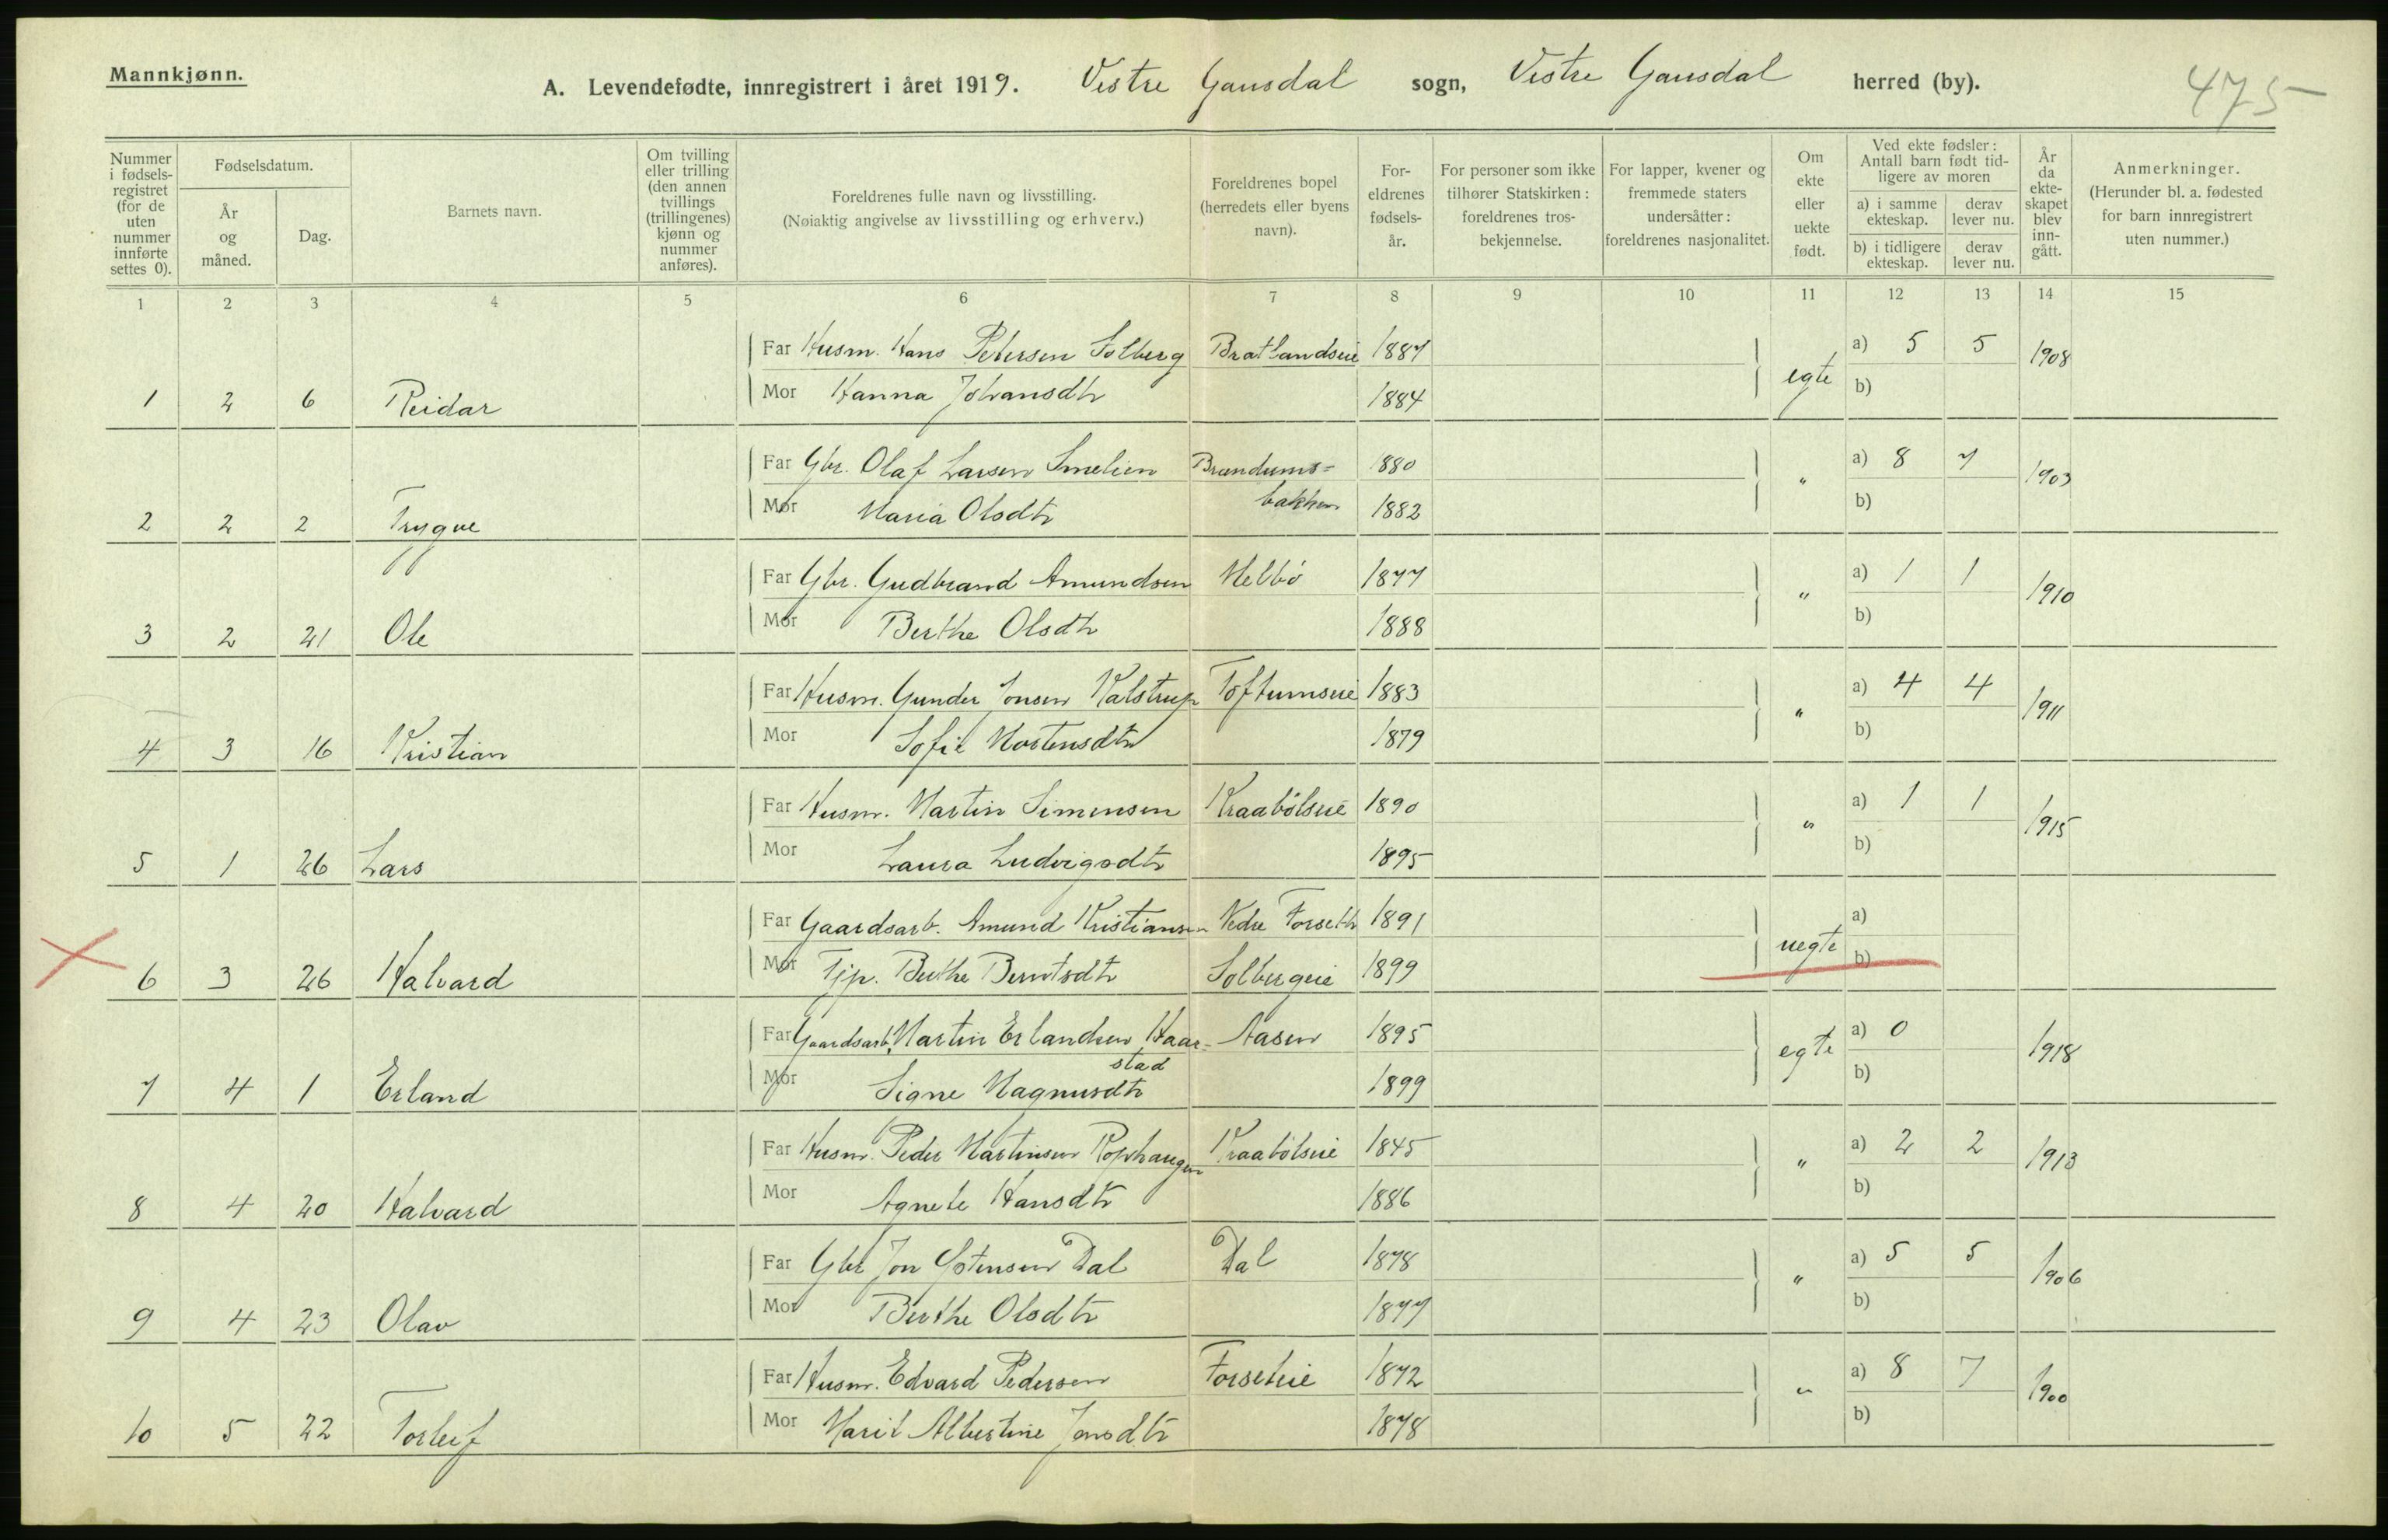 Mannkjønn.
A. Levendefødte, innregistrert i året 1919. Vestre Gausdal sogn, Vestre Gausdal herred (by).
475
Nummer i fødsels-registret (for de uten nummer innførte settes 0).
Fødselsdatum.
År og måned.
Dag.
Barnets navn.
Om tvilling eller trilling (den annen tvillings (trillingenes) kjønn og nummer anføres).
Foreldrenes fulle navn og livsstilling.
(Nøiaktig angivelse av livsstilling og erhverv.)
Foreldrenes bopel (herredets eller byens navn).
For-eldrenes fødsels-år.
For personer som ikke tilhører Statskirken: foreldrenes tros-bekjennelse.
For lapper, kvener og fremmede staters undersåtter: foreldrenes nasjonalitet.
Om ekte eller uekte født.
Ved ekte fødsler: Antall barn født tid-ligere av moren
a) i samme ekteskap. derav lever nu.
b) i tidligere ekteskap. derav lever nu.
År da ekte-skapet blev inn-gått.
Anmerkninger.
(Herunder bl. a. fødested for barn innregistrert uten nummer.)
1 2 3 4 5 6 7 8 9 10 11 12 13 14 15
Far Husm. Hans Petersen Solberg Bratlandseie 1887 a) 5 5 1908
1 2 6 Reidar Mor Hanna Johansdtr 1884 egte b)
Far Gbr. Olaf Larsen Smelien Brændums= 1880 a) 8 7 1903
2 2 2 Trygve Mor Maria Olsdtr bakken 1882 " b)
Far Gbr. Gudbrand Amundsen Melbö 1877 a) 1 1 1910
3 2 21 Ole Mor Berthe Olsdtr 1888 " b)
Far Husm. Gunder Jonsen Kalstrup Toftumseie 1883 a) 4 4 1911
4 3 16 Kristian Mor Sofie Mortensdtr 1879 " b)
Far Husm. Martin Simensen Kraabölseie 1890 a) 1 1 1915
5 1 26 Lars Mor Laura Ludvigsdtr 1895 " b)
Far Gaardsarb. Amund Kristiansen Nedre Forseth 1891 a)
6 3 26 Halvard Mor Tjp. Berthe Berntsdtr Solbergeie 1899 uegte b)
Far Gaardsarb. Martin Erlandsen Haar- Aasen 1895 a) 0 1918
stad
7 4 1 Erland Mor Signe Magnusdtr 1899 egte b)
Far Husm. Peder Martinsen Kraabölseie 1845 a) 2 2 1913
8 4 20 Halvard Mor Agnete Hansdtr 1886 " b)
Far Gbr Jon Ostensen Dal Dal 1878 a) 5 5 1906
9 4 23 Olav Mor Berthe Olsdtr 1877 " b)
Far Husm. Edvard Pedersen Forseteie 1872 a) 8 7 1900
10 5 22 Torleif Mor Marit Albertine Jonsdtr 1878 " b)